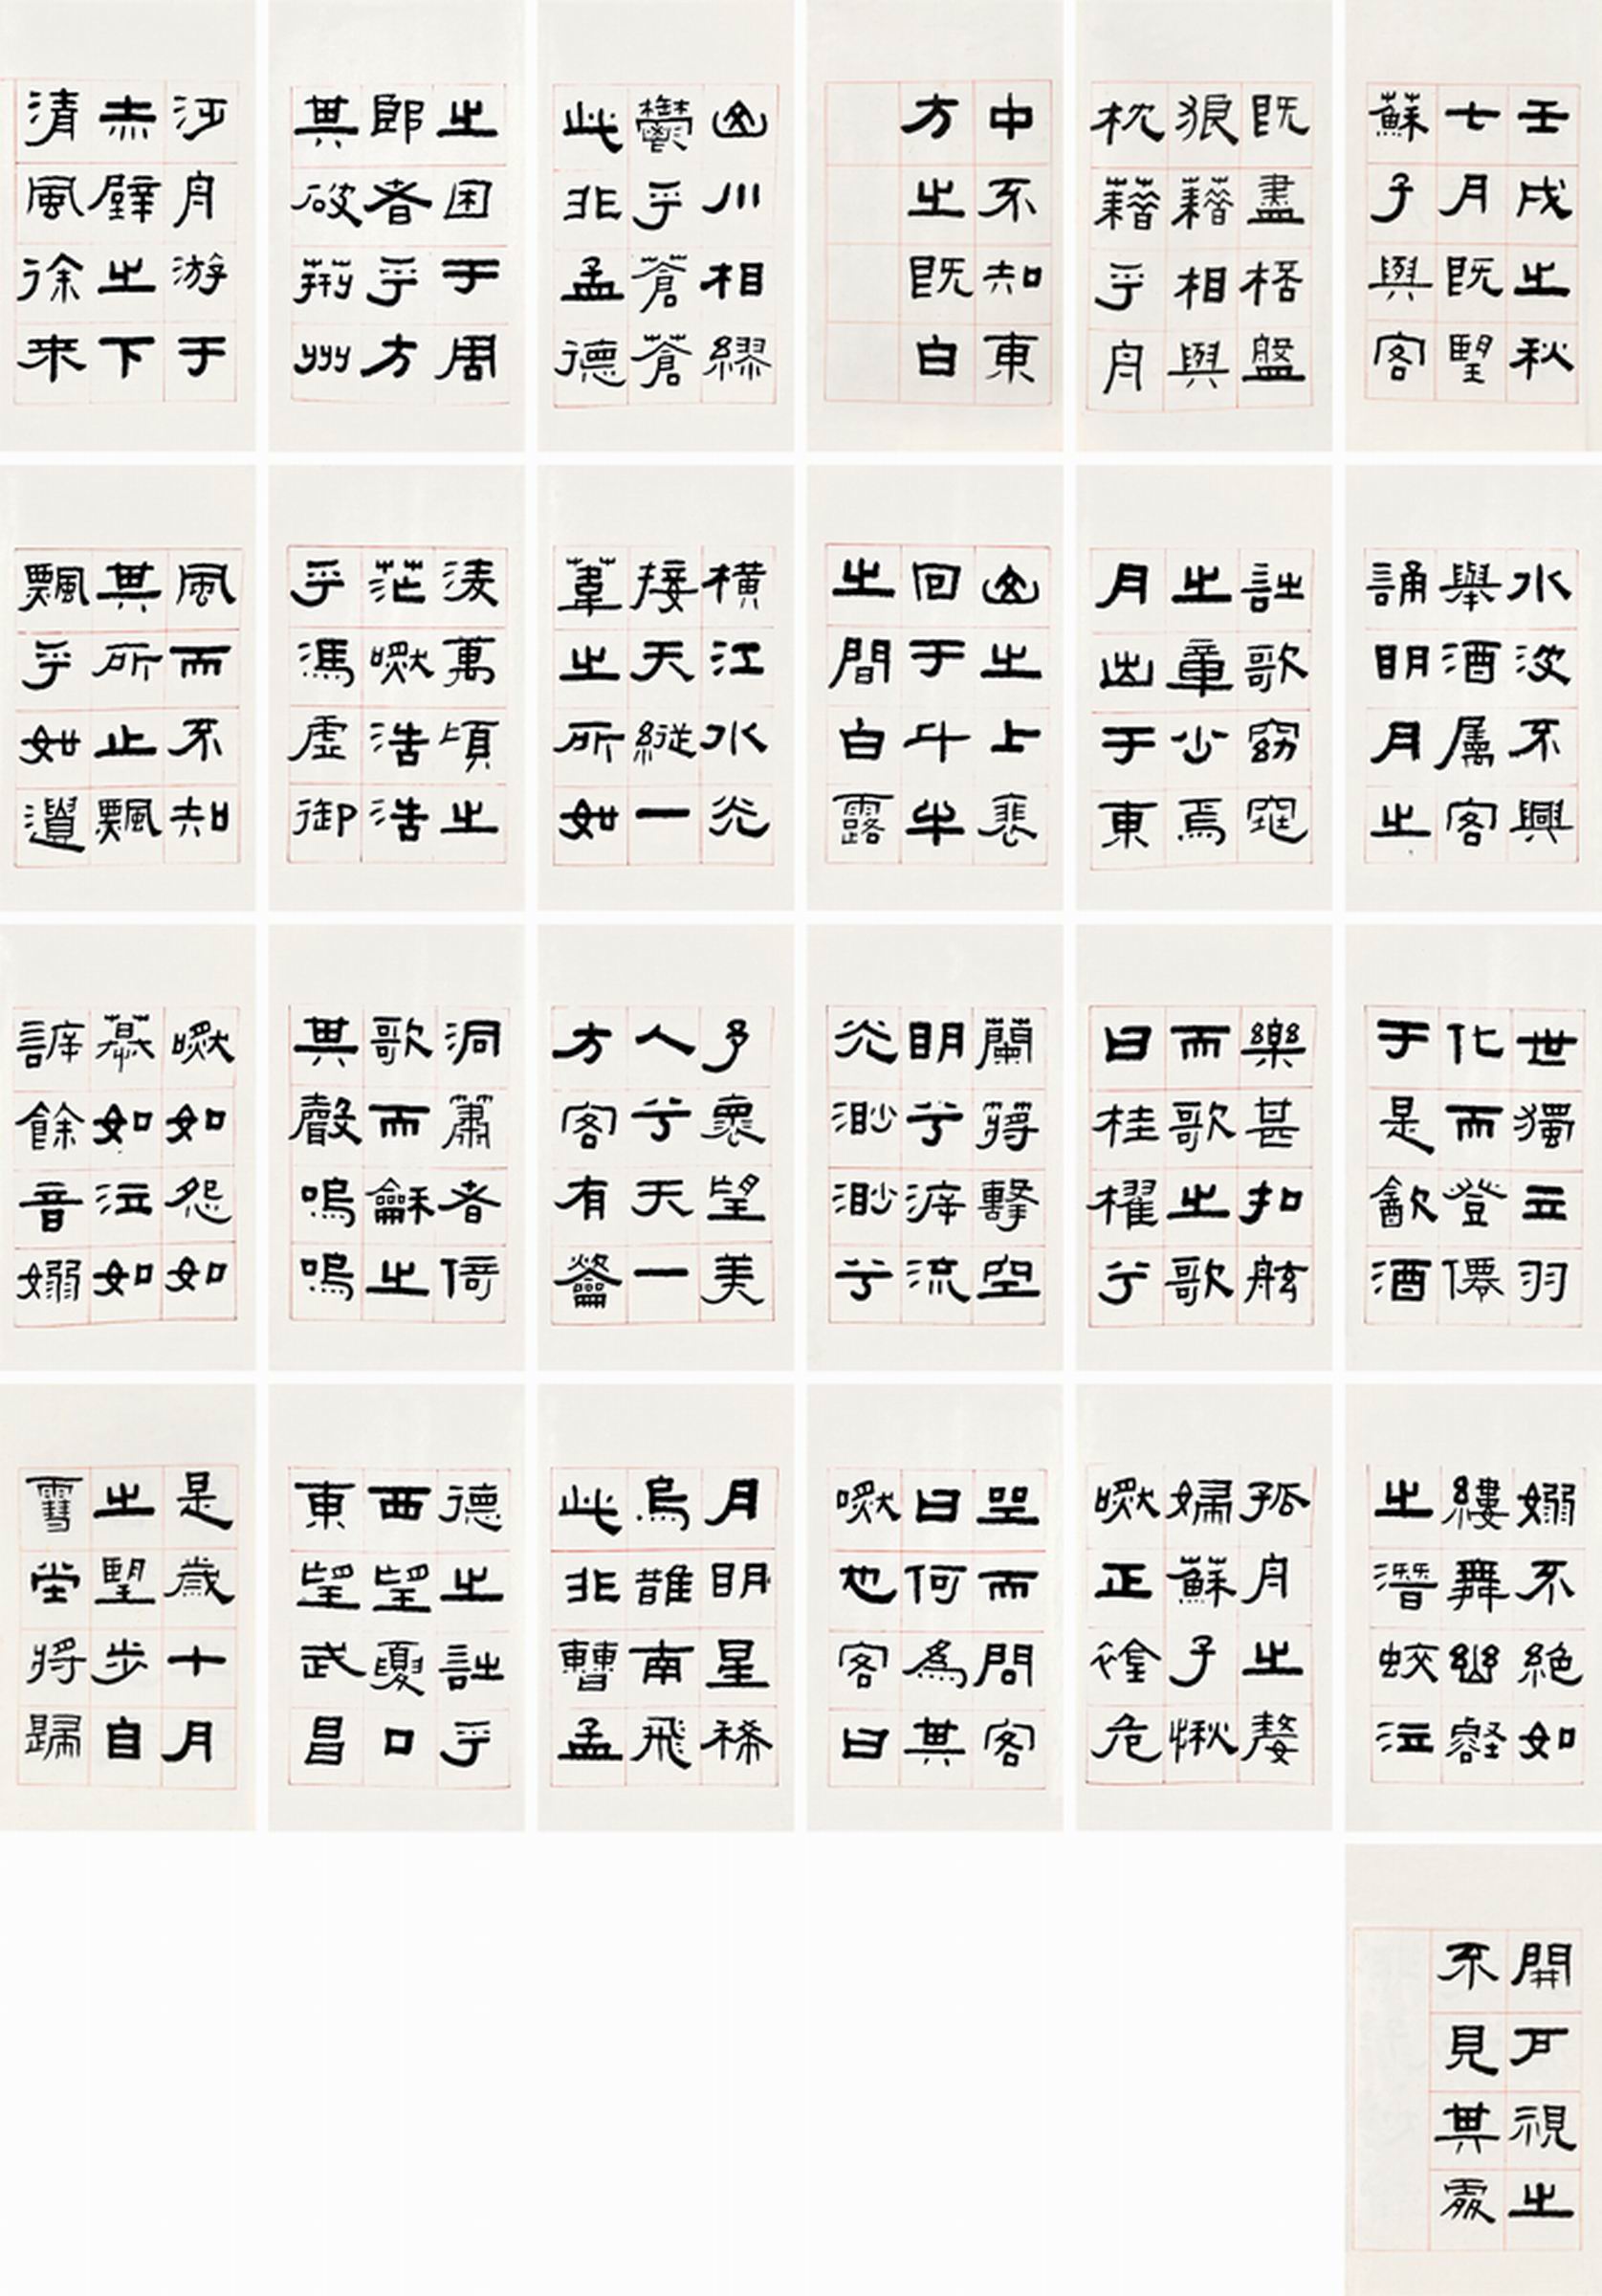 壬戌之秋
七月既望
蘇子與客
既盡桮盤
狼藉相與
枕藉乎舟
中不知東
方之既白
山川相繆
鬱乎蒼蒼
此非孟德
之困于周
郎者乎方
其破荊州
泛舟游于
赤壁之下
清風徐來
水波不興
舉酒屬客
誦明月之
詩歌窈窕
之章少焉
月出于東
山之上裴
回于斗牛
之間白露
橫江水光
接天縱一
葦之所如
淩萬頃之
茫嘫浩浩
乎馮虛御
風而不知
其所止飄
飄乎如遺
世獨立羽
化而登僊
于是飲酒
樂甚扣舷
而歌之歌
曰桂櫂兮
蘭蔣擊空
明兮泝流
光渺渺兮
予褱望美
人兮天一
方客有龡
洞簫者倚
歌而龢之
其聲嗚嗚
嘫如怨如
慕如泣如
訴餘音嫋
嫋不絕如
縷舞幽壑
之潛蛟泣
孤舟之嫠
婦蘇子愀
嘫正襟危
坐而問客
曰何為其
嘫也客曰
月明星稀
烏鵲南飛
此非曹孟
德之詩乎
西望夏口
東望武昌
是歲十月
之望步自
雪堂將歸
開戶視之
不見其處